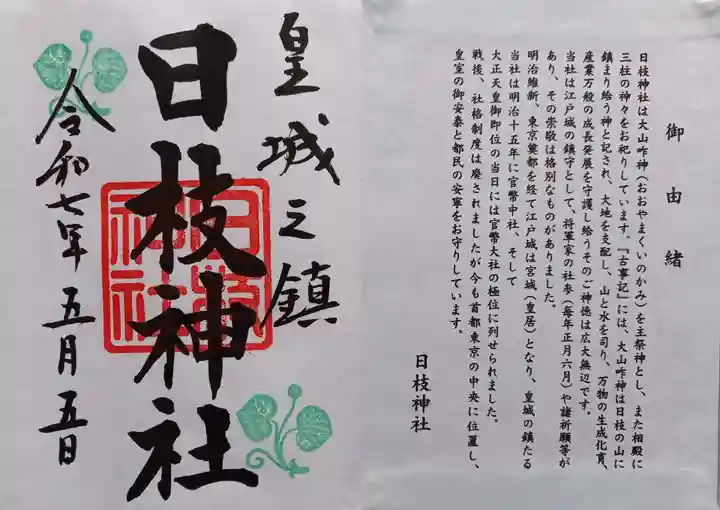 皇城之鎮
日枝神社
日枝神社
令和七年 五月五日
御由緒
日枝神社は大山咋神（おおやまくいのかみ）を主祭神とし、また相殿に
三柱の神々をお祀りしています。『古事記』には、大山咋神は日枝の山に
鎮まり給う神と記され、大地を支配し、山と水を司り、万物の生成化育、
産業万般の成長発展を守護し給うそのご神徳は広大無辺です。
当社は江戸城の鎮守として、将軍家の社参（毎年正月六月）や諸祈願等が
あり、その崇敬は格別なものがありました。
明治維新、東京奠都を経て江戸城は宮城（皇居）となり、皇城の鎮たる
当社は明治十五年に官幣中社、そして
大正天皇御即位の当日には官幣大社の極位に列せられました。
戦後、社格制度は廃されましたが今も首都東京の中央に位置し、
皇室の御安泰と都民の安寧をお守りしています。
日枝神社